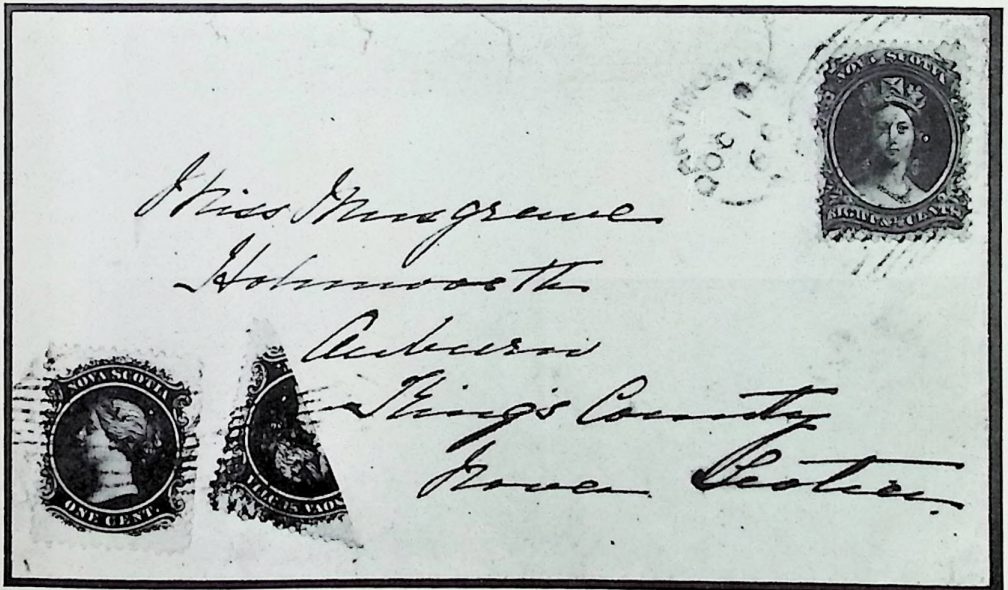 NOVA SCOTIA
EIGHT & ½ CENTS
Miss Musgrave
Auburn
King's County
Nova Scotia
NOVA SCOTIA
ONE CENT.